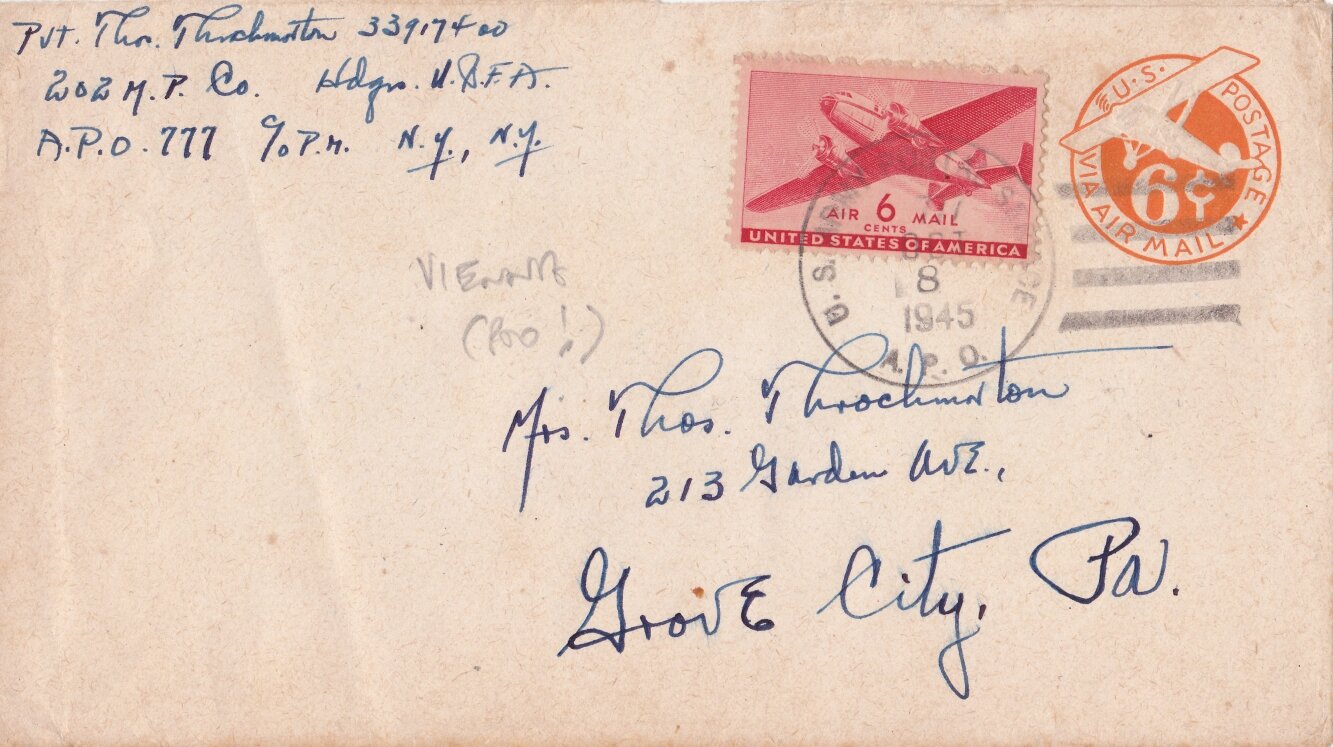 Pvt. Thos. Throckmorton 33917400
202 M.P. Co. Hdqrs. U.S.F.A.
A.P.O. 777 c/o P.M. N.Y., N.Y.
U.S. POSTAGE
VIA AIR MAIL
6¢
AIR 6 MAIL
CENTS
UNITED STATES OF AMERICA
U.S. ARMY POSTAL SERVICE
OCT
8
1945
A.P.O.
VIENNA
Mrs. Thos. Throckmorton
213 Garden AVE.,
GrovE City, Pa.